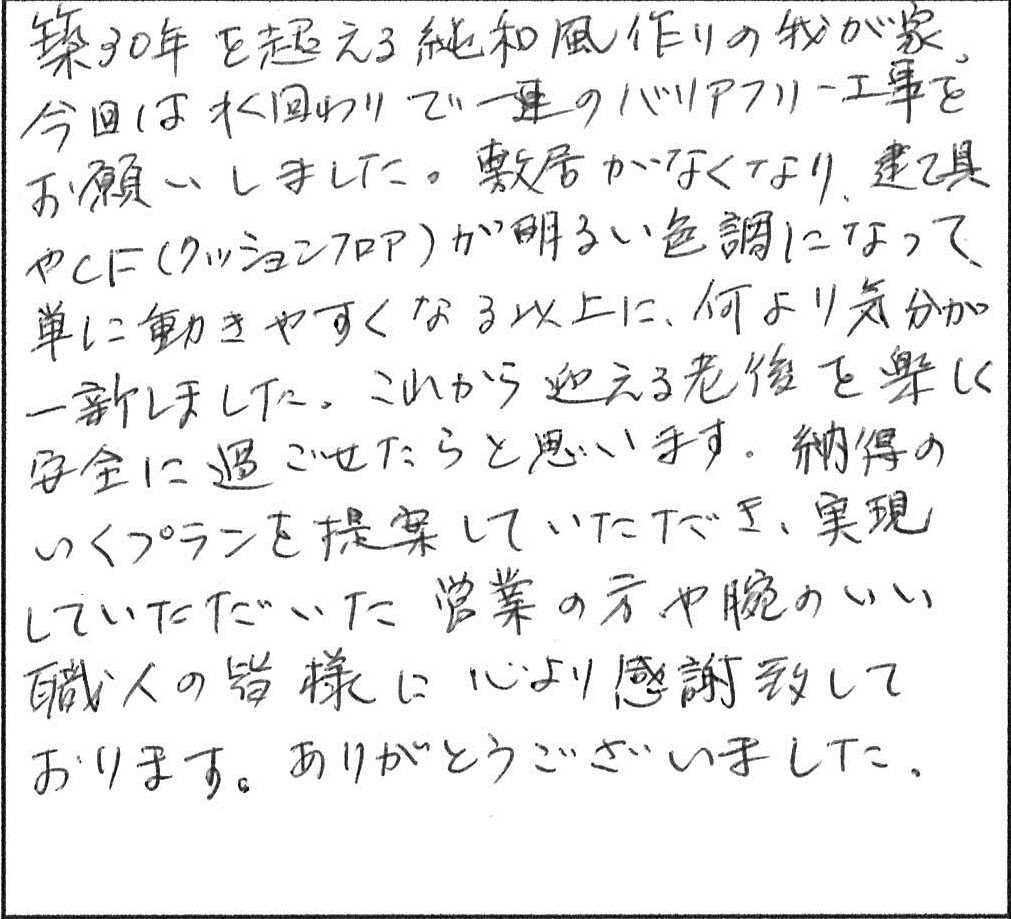 築30年を超える純和風作りの我が家。
今回は水回りで一連のバリアフリー工事を
お願いしました。敷居がなくなり、建て具
やCF(クッションフロア)が明るい色調になって、
単に動きやすくなる以上に、何より気分が
一新しました。これから迎える老後を楽しく
安全に過ごせたらと思います。納得の
いくプランを提案していただき、実現
していただいた営業の方や腕のいい
職人の皆様に心より感謝致して
おります。ありがとうございました。